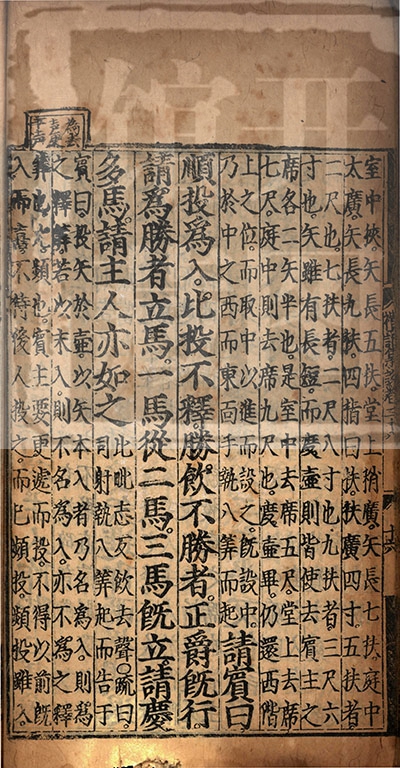 為去
声更
平声
室中狹矢長五扶堂上稍廣矢長七扶庭中
太廣矢長九扶四指曰扶扶廣四寸五扶者
二尺也七扶者二尺八寸也九扶者三尺六
寸也矢雖有長短而度壺則皆使去賓主之
席各二矢半也是室中去席五尺堂上去席
七尺庭中則去席九尺也度壺畢仍還西階
上之位而取中以進而設之旣設中
乃於中之西而東面手執八筭而起
請賓曰
順投爲入比投不釋勝飲不勝者正爵旣行
請爲勝者立馬一馬從二馬三馬旣立請慶
多馬請主人亦如之
比毗志反飲去聲○疏曰
司射執八筭起而告于
賓曰投矢於壺以矢本入者乃名為入則為
之釋筭若以末入則不名為入亦不為之釋
筭也比頻也賓主要更遞而投不得以前旣
入而喜不待後人投之而已頻投頻投雖入